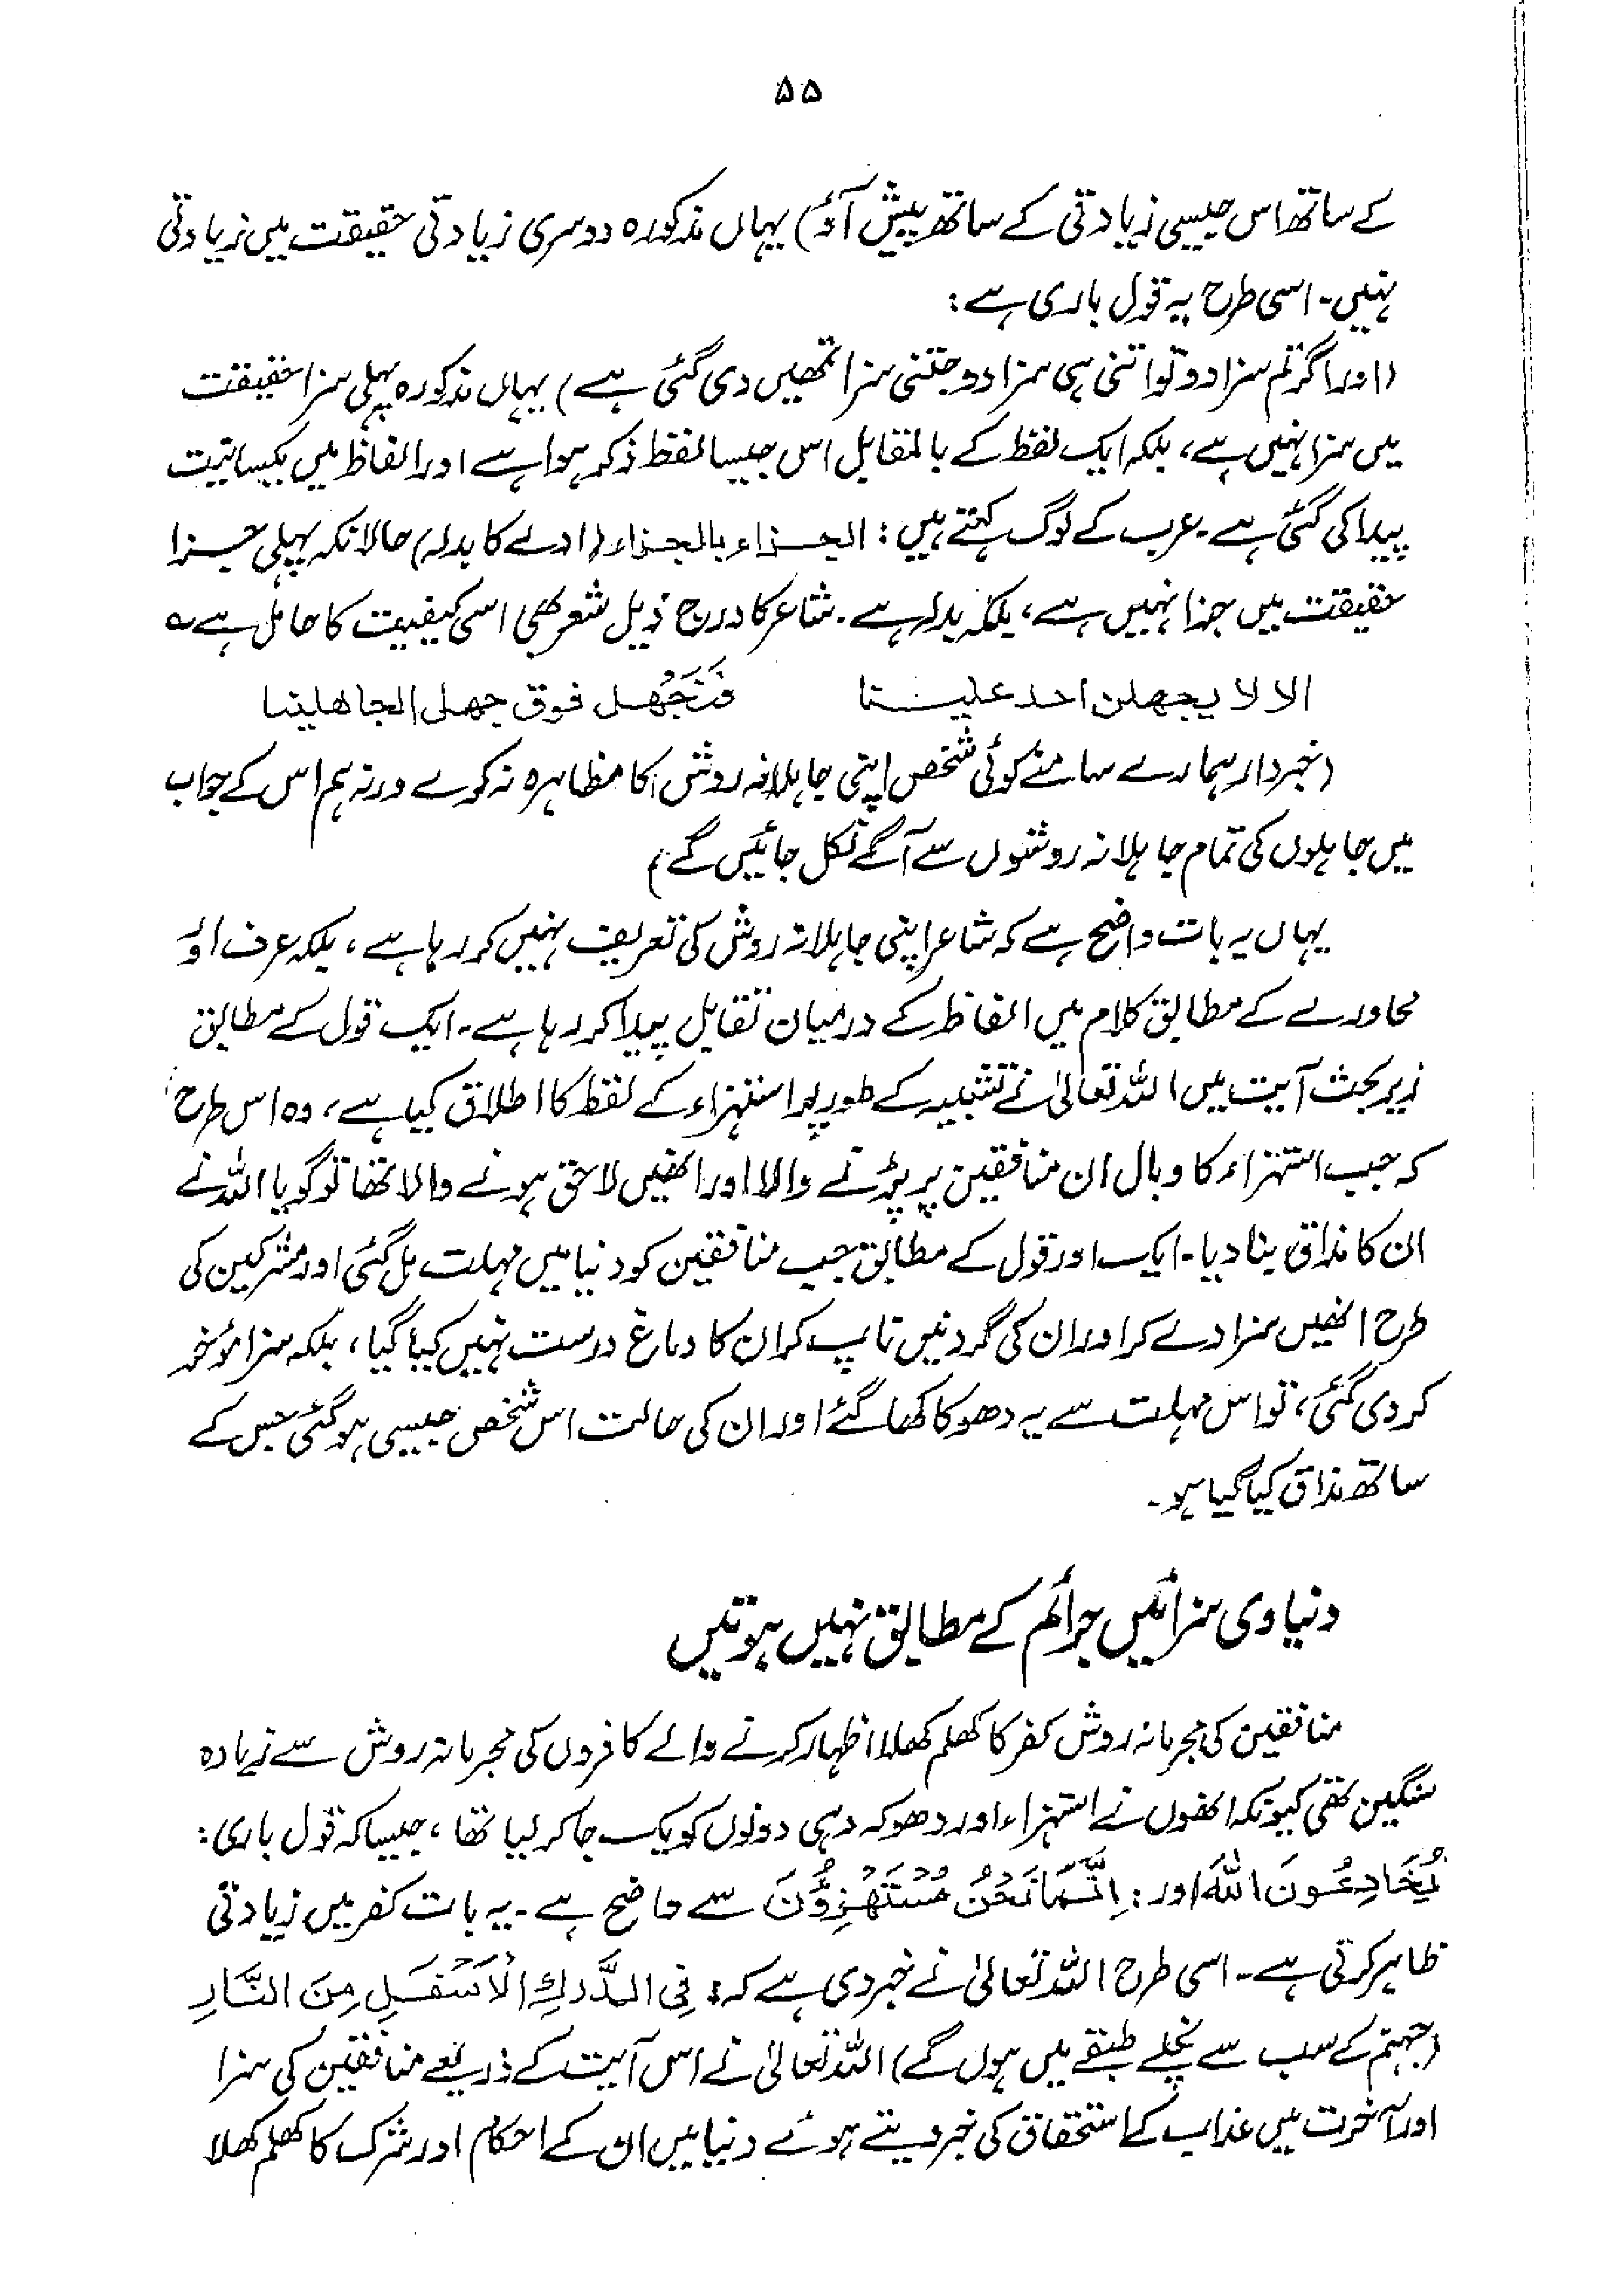 ۵۵
کے ساتھ اس جیسی زیادتی کے ساتھ پیش آؤ) یہاں مذکورہ دوسری زیادتی حقیقت میں زیادتی
نہیں۔ اسی طرح یہ قول باری ہے:
(اور اگر تم سزا دو تو اتنی ہی سزا دو جتنی سزا تمھیں دی گئی ہے) یہاں مذکورہ پہلی سزا حقیقت
میں سزا نہیں ہے، بلکہ ایک لفظ کے بالمقابل اس جیسا لفظ ذکر ہوا ہے اور الفاظ میں یکسانیت
پیدا کی گئی ہے۔ عرب کے لوگ کہتے ہیں: الجزاء بالجزاء (ادلے کا بدلہ) حالانکہ پہلی جزا
حقیقت میں جزا نہیں ہے، بلکہ بدلہ ہے۔ شاعر کا درج ذیل شعر بھی اسی کیفیت کا حامل ہے ؎
الا لا یجھلن احد علینا فَنَجْھل فوق جھل الجاھلینا
(خبردار ہمارے سامنے کوئی شخص اپنی جاہلانہ روش کا مظاہرہ نہ کرے ورنہ ہم اس کے جواب
میں جاہلوں کی تمام جاہلانہ روشوں سے آگے نکل جائیں گے)
یہاں یہ بات واضح ہے کہ شاعر اپنی جاہلانہ روش کی تعریف نہیں کر رہا ہے، بلکہ عرف اور
محاورے کے مطابق کلام میں الفاظ کے درمیان تقابل پیدا کر رہا ہے۔ ایک قول کے مطابق
زیر بحث آیت میں اللہ تعالیٰ نے تشبیہ کے طور پر استہزاء کے لفظ کا اطلاق کیا ہے، وہ اس طرح
کہ جب استہزاء کا وبال ان منافقین پر پڑنے والا اور انھیں لاحق ہونے والا تھا تو گویا اللہ نے
ان کا مذاق بنا دیا۔ ایک اور قول کے مطابق جب منافقین کو دنیا میں مہلت مل گئی اور مشرکین کی
طرح انھیں سزا دے کر اور ان کی گردنیں ناپ کر ان کا دماغ درست نہیں کیا گیا، بلکہ سزا مؤخر
کر دی گئی، تو اس مہلت سے یہ دھوکا کھا گئے اور ان کی حالت اس شخص جیسی ہو گئی جس کے
ساتھ مذاق کیا گیا ہو۔
دنیاوی سزائیں جرائم کے مطابق نہیں ہوتیں
منافقین کی مجرمانہ روش کفر کا کھلم کھلا اظہار کرنے والے کافروں کی مجرمانہ روش سے زیادہ
سنگین تھی کیونکہ انھوں نے استہزاء اور دھوکہ دہی دونوں کو یک جا کر لیا تھا، جیسا کہ قول باری:
یُخَادِعُونَ اللّٰهَ اور: اِنَّمَا نَحْنُ مُسْتَهْزِؤُنَ سے واضح ہے۔ یہ بات کفر میں زیادتی
ظاہر کرتی ہے۔ اسی طرح اللہ تعالیٰ نے خبر دی ہے کہ: فِی الدَّرْكِ الْاَسْفَلِ مِنَ النَّارِ
(جہنم کے سب سے نچلے طبقے میں ہوں گے) اللہ تعالیٰ نے اس آیت کے ذریعے منافقین کی سزا
اور آخرت میں عذاب کے استحقاق کی خبر دیتے ہوئے دنیا میں ان کے احکام اور شرک کا کھلم کھلا